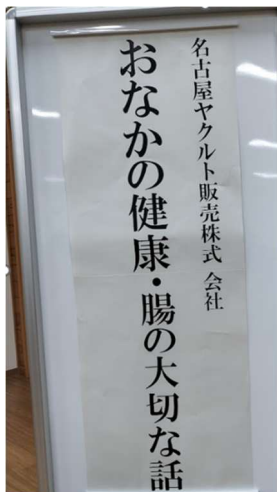 名古屋ヤクルト販売株式 会社
おなかの健康・腸の大切な話